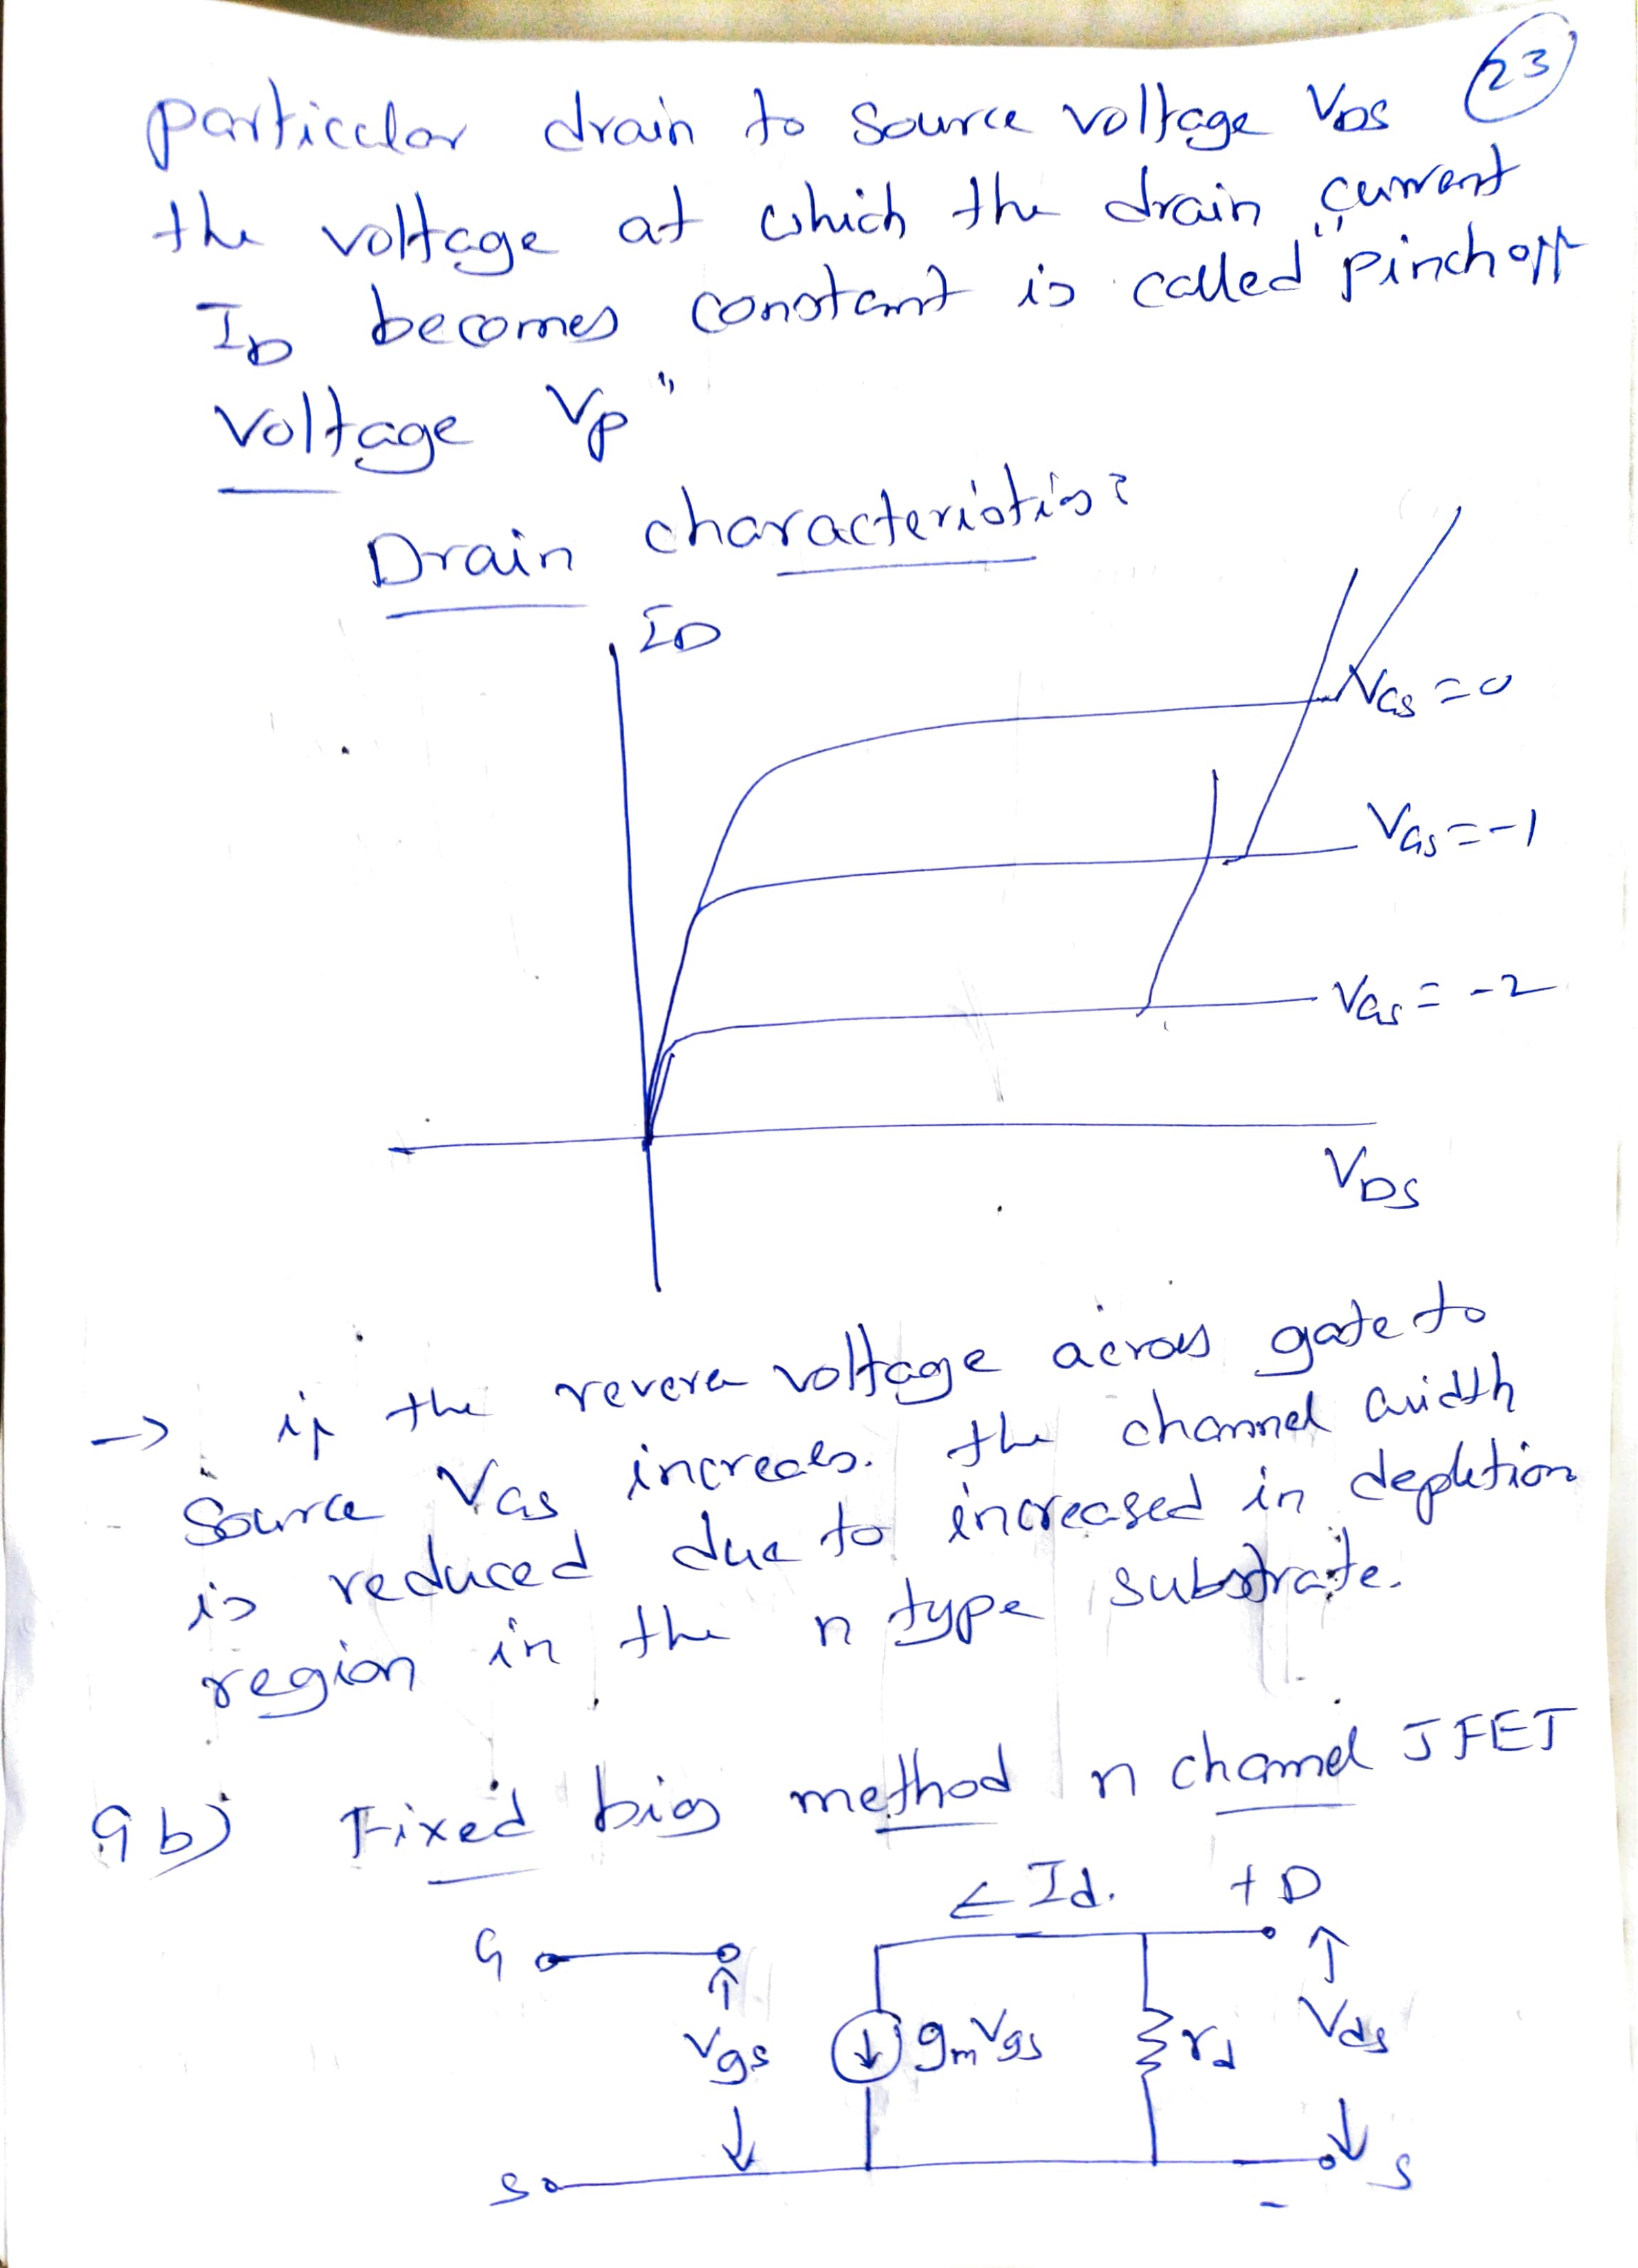 23
particular drain to source voltage VDS
the voltage at which the drain current
ID becomes constant is called "pinch off
voltage Vp"
Drain characteristics:
ID
VGS = 0
VGS = -1
VGS = -2
VDS
→ if the reverse voltage across gate to
source VGS increases. the channel width
is reduced due to increased in depletion
region in the n type substrate.
9b) Fixed bias method n channel JFET
← Id. + D
G
Vgs gmVgs rd Vds
S - S